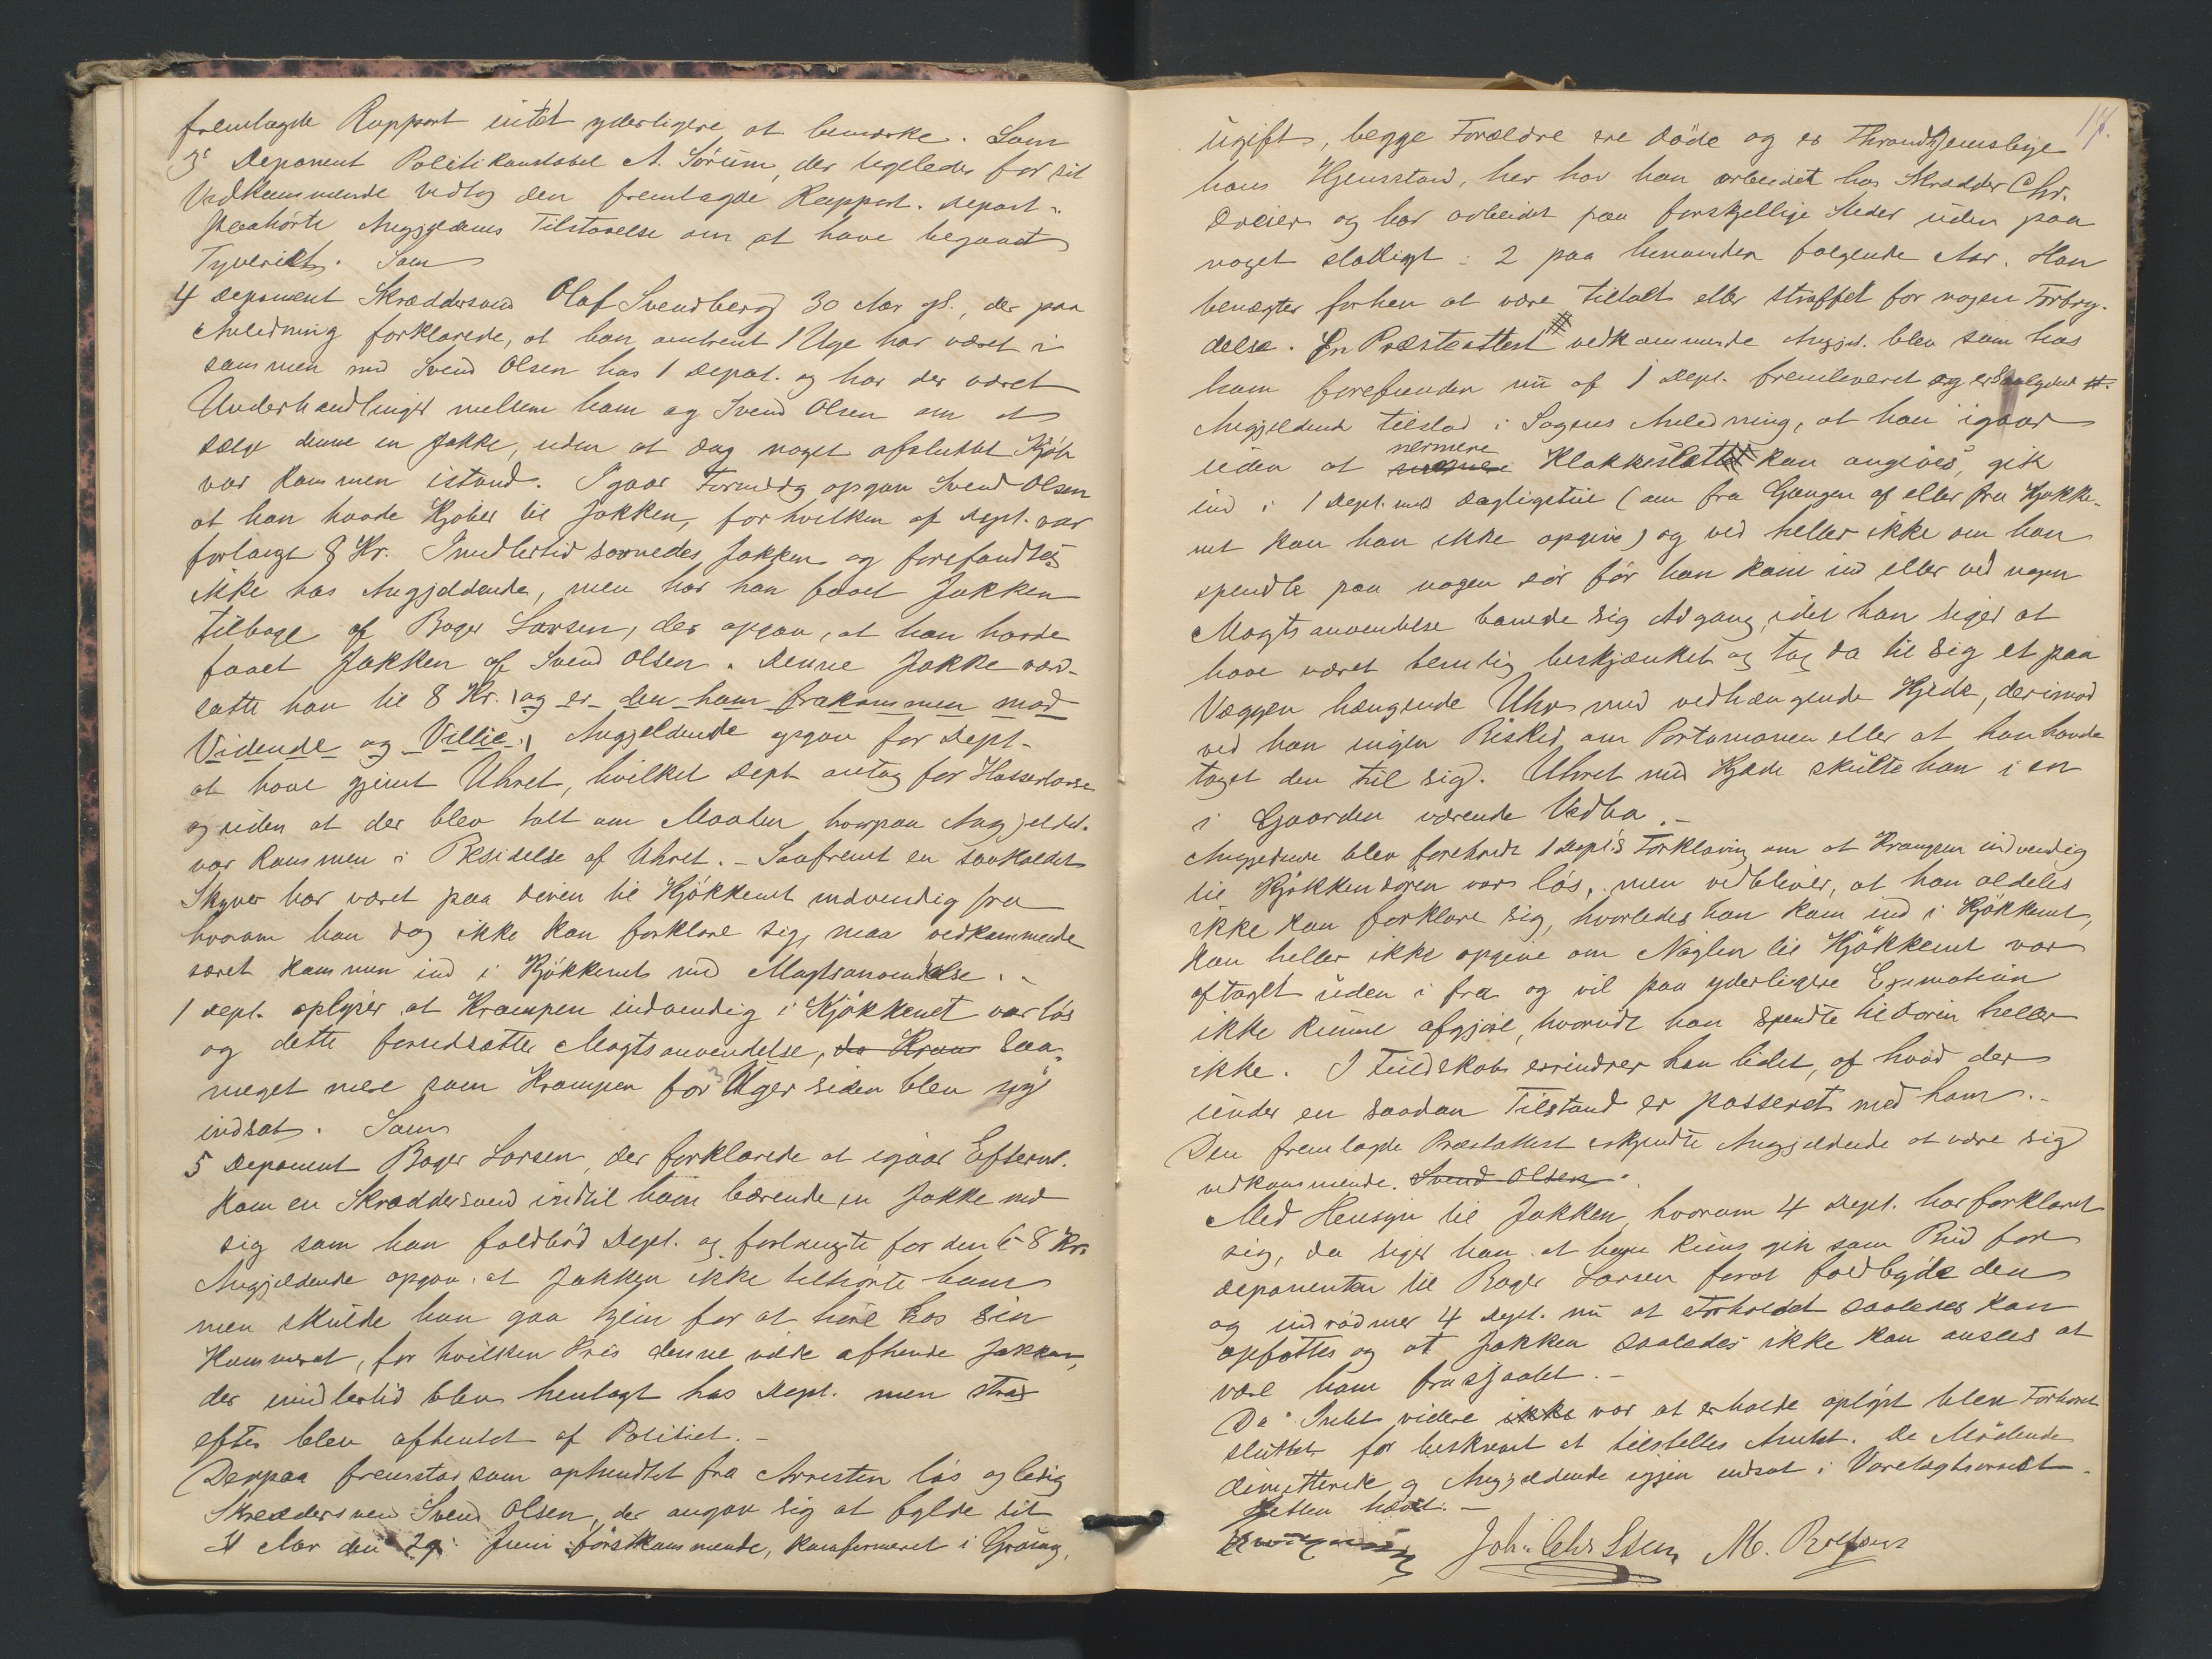 fremlagde Rapport intet yderligere at bemærke. Som
3' Deponent Politikonstabel A. Sörum, der ligeledes for sit
Vedkommende vedtog den fremlagde Rapport. Depont.
paahörte Angjældendes Tilstaaelse om at have begaaet
Tyveriet. Som
4 Deponent Skræddersvend Olaf Svendberg 30 Aar gl., der paa
Anledning forklarede, at han omtrent 1 Uge har været i
sammen med Svend Olsen hos 1 Depot. og har der været
Underhandlinger mellem ham og Svend Olsen om at
sælge denne en Jakke, uden at dog noget afsluttet Kjöb
var kommen istand. Igaar Formidg opgav Svend Olsen
at han havde Kjöber til Jakken, for hvilken af Dept. var
forlangt 8 Kr. Imidlertid savnedes Jakken og forefandtes
ikke hos Angjældende, men har han faaet Jakken
tilbage af Bager Larsen, der opgav, at han havde
faaet Jakken af Svend Olsen. Denne Jakke værd-
satte han til 8 Kr. og er den ham frakommen mod
Vidende og Villie. Angjeldende opgav for Dept.
at have gjemt Uhret, hvilket Dept antog for
og uden at der blev talt om Maaden hvorpaa Angjeldd.
var kommen i Besidelse af Uhret. – Saafremt en saakaldet
Skyver har været paa Dören til Kjökkenet indvendig fra
hvorom han dog ikke kan forklare sig, maa vedkommende
været kommen ind i Kjökkenet med Magtsanvendelse. –
1 Dept. oplyser at Krampen indvendig i Kjökkenet var lös
og dette forudsætter Magtsanvendelse, da Kram saa-
meget mere som Krampen for 3 Uger siden blev ny
indsat. Som
5 Deponent Bager Larsen, der forklarede at igaar Efterm.
kom en Skræddersvend indtil ham bærende en Jakke med
sig som han faldböd Dept. og forlangte for den 6-8 Kr.
Angjældende opgav, at Jakken ikke tilhörte ham
men skulde han gaa hjem for at höre hos sin
Kammerat, for hvilken Pris denne vilde afhende Jakken,
der imidlertid blev henlagt hos Dept. men strax
efter blev afhentet af Politiet. –
Derpaa fremstod som afhendtet fra Arresten lös og ledig
Skræddersvend Svend Olsen, der angav sig at fylde sit
Aar den 29 Juni förstkommende, konfirmeret i Grong,
17.
ugift, begge Forældre ere döde og er Throndhjemslige
hans Hjemstavn, her har han arbeidet hos Skrædder Chr.
Dreier og har arbeidet paa forskjellige Steder uden paa
noget stadigt i 2 paa hinanden fölgende Aar. Han
benægter forhen at være tiltalt eller straffet for nogen Forbry-
delse. En Præsteattest vedkommende Angjæl. blev som hos
ham forefunden nu af 1 Dept. fremleveret og er saalydende
Angjældende tilstod i Sagens Anledning, at han igaar
nærmere
uden at Klokkeslættet kan angives, gik
ind i 1 Dept. med Dagligstue (om fra Gangen af eller fra Kjökke-
net kan han ikke opgive) og ved heller ikke om han
spendte paa nogen Dör för han kom ind eller ved nogen
Magtsanvendelse banede sig Adgang, idet han siger at
have været temlig beskjænket og tog da til sig et paa
Væggen hængende Uhr med vedhængende Kjede, derimod
ved han ingen Besked om Portemonen eller at han havde
taget den til sig. Uhret med Kjede skulte han i en
i Gaarden værende Vedbo. –
Angjeldende blev foreholdt 1 Dept's Forklaring om at Krampen indvendig
til Kjökkendören var lös, men vedbliver, at han aldeles
ikke kan forklare sig, hvorledes han kom ind i Kjökkenet,
kan heller ikke opgive om Nöglen til Kjökkenet var
aftaget uden i fra og vil paa yderligere Exmation
ikke kunne afgjöre, hvorvidt han spendte til Dören heller
ikke. I Fuldskab erindrer han lidet, af hvad der
under en saadan Tilstand er passeret med ham. –
Den fremlagte Præstattest erkjendte Angjældende at være sig
vedkommende. Svend Olsen.
Med Hensyn til Jakken, hvorom 4 Dept. har forklaret
sig, da siger han at han kuns gik som Bud for
Deponenten til Bager Larsen forat faldbyde den
og indrödmer 4 Dept. nu at Forholdet saaledes kan
opfattes og at Jakken saaledes ikke kan ansees at
være ham frastjaalet. –
Da Intet videre ikke var at erholde oplyst blev Forhöret
sluttet for beskrevet at tilstelles Amtet. De Mödende
dimitterede og Angjældende igjen indsat i Varetægtsarrest.
Retten hævet. –
Joh. Chr Steen M. Rolfsen